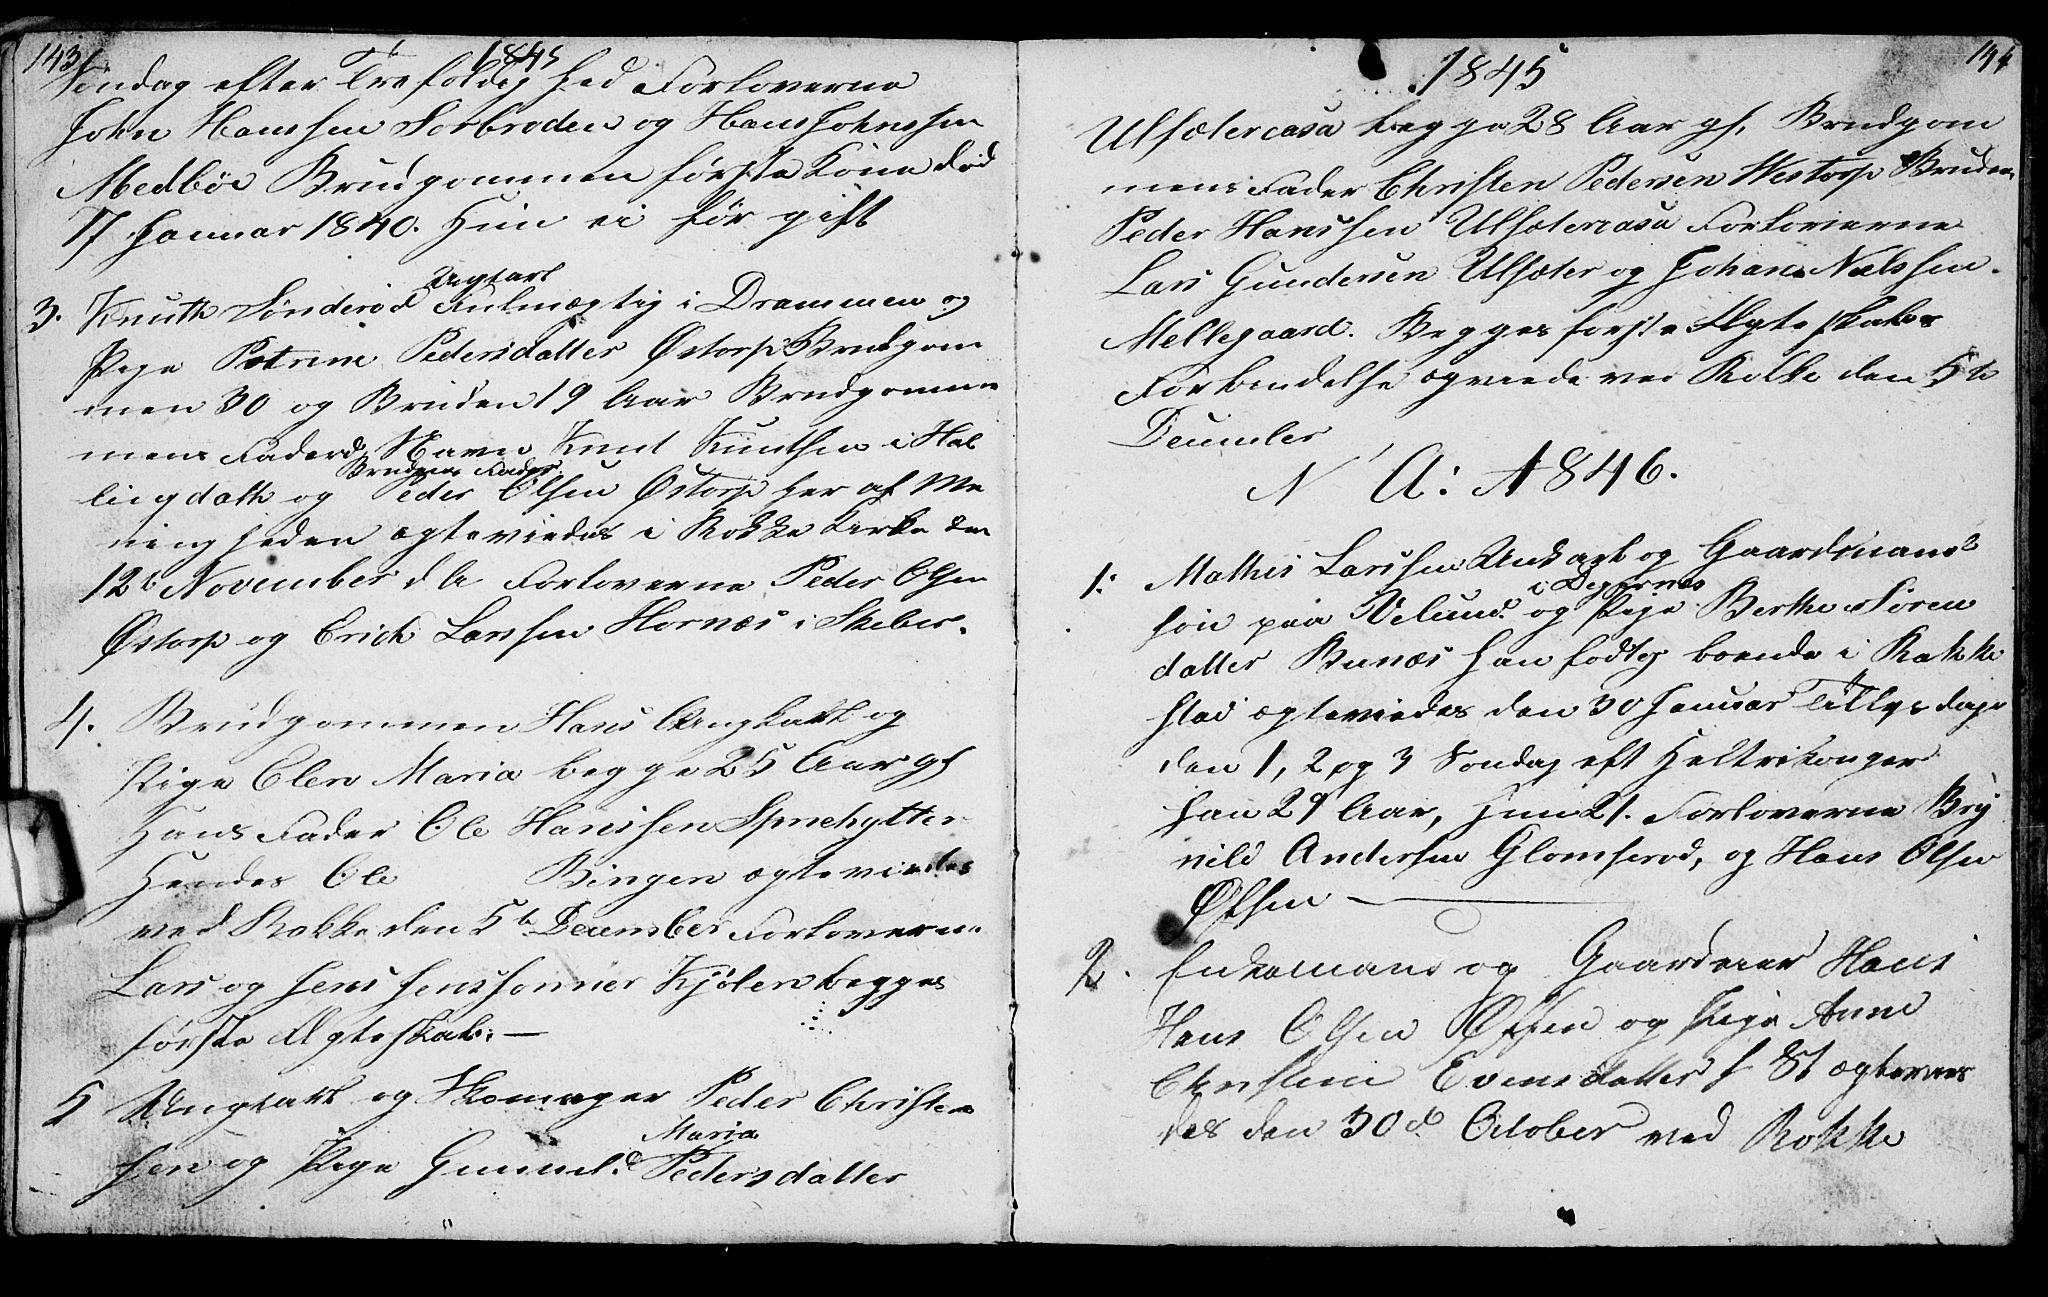 143
1845
Søndag efter Trefoldig hed Forloverne
John Hanssen Torbroden og Hans Johnssen
Medböe Brudgommen første Kone död
17 Januar 1840. Hun ei før gift
3. Knuth Sönderöd Ungkarl Fulmægtig i Drammen og
Pige Petrine Pedersdatter Østorp Brudgom
men 30 og Bruden 19 Aar Brudgomme
mens Faders Navn Knud Knudsen i Hal
lingdahl og Brudens Fader Peder Olsen Østorp her af Me
nigheden ægteviedes i Rokke Kirke den
12te November d A Forloverne Peder Olsen
Østorp og Erich Larssen Hornæs i Skeber.
4. Brudgommen Hans Ungkarl og
Pige Olen Maria begge 25 Aar gl
Hans Fader Ole Hanssen
Hendes Ole Bingen ægteviedes
ved Rokke den 5te December Forlovern
Lars og Jens Jenssønner Kjölen begges
første Ægteskab. —
5 Ungkarl og Skomager Peder Christen
sen og Pige Gunnild Maria Pedersdatter
144
1845
Ulsætercasa begge 28 Aar gl. Brudgom
mens Fader Christen Pedersen Westorp Brudens
Peder Hanssen Ulsætercasa Forloverne
Lars Gundersen Ulsæter og Johan Nielssen
Mellegaard. Begges første Ægteskabs
Forbindelse ægviede ved Rokke den 5te
December
N A: 1846.
1. Mathis Larssen Unkarl og Gaardmands
sön paa Velund i Degernes og Pige Berthe Sören
datter Bunæs han födt og boende i Rakke
stad ægteviedes den 30 Januar Tillysdage
den 1, 2 og 3 Søndag eft Heltrekonger
han 29 Aar, hun 21. Forloverne Bry
nild Andersen Glomseröd, og Hans Olsen
Øfsen —
2. Enkemand og Gaardeier Hans
Hans Olsen Øfsen og Pige Anne
Christine Evensdatter f St ægtevies
des den 30d October ved Rokke